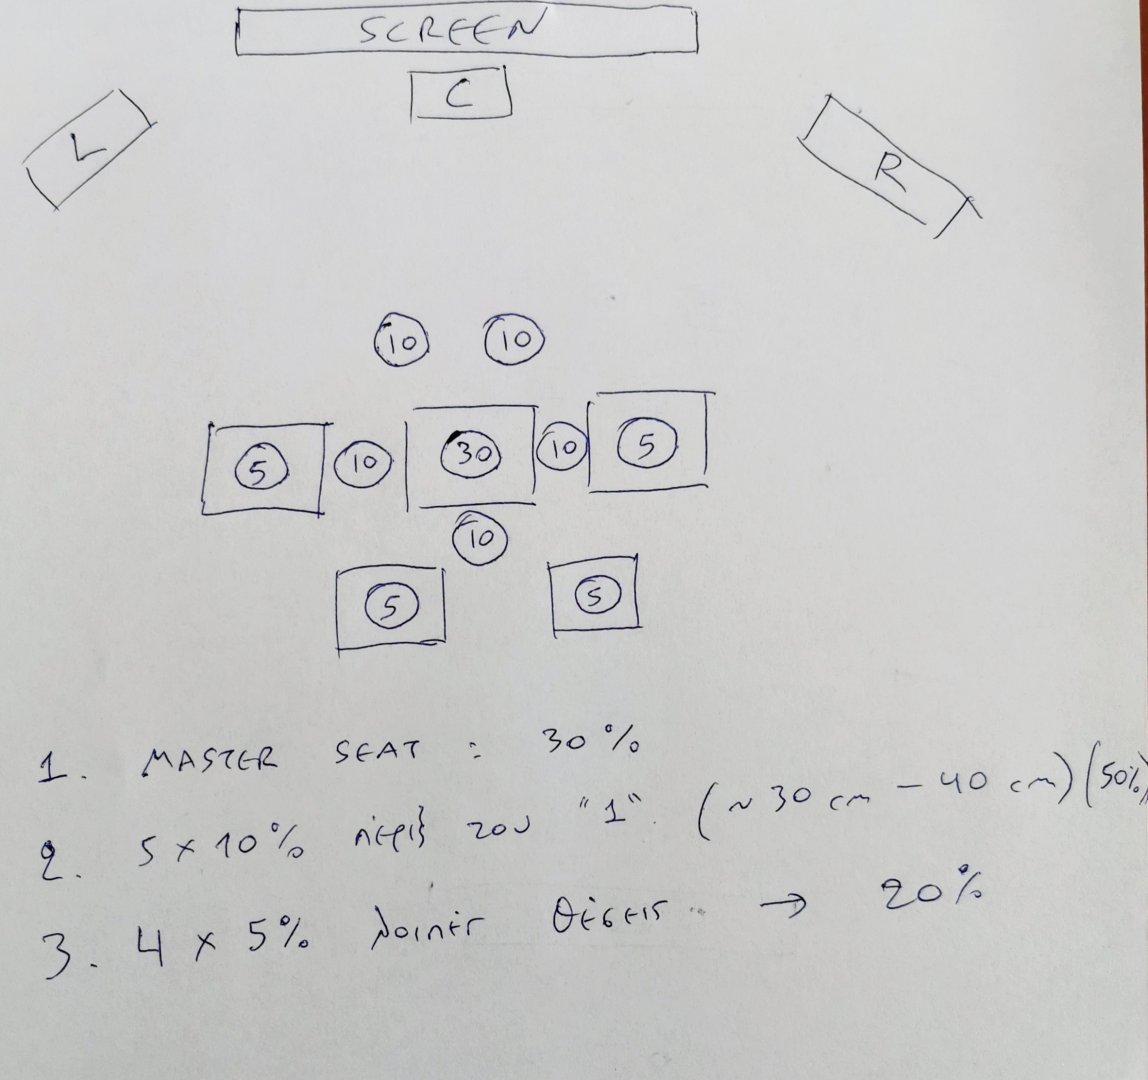 SCREEN
C
L
R
10 10
5 10 30 10 5
10
5 5
1. MASTER SEAT : 30%
2. 5 x 10% πέριξ του "1". (~30 cm - 40 cm) (50%)
3. 4 x 5% λοιπές θέσεις → 20%